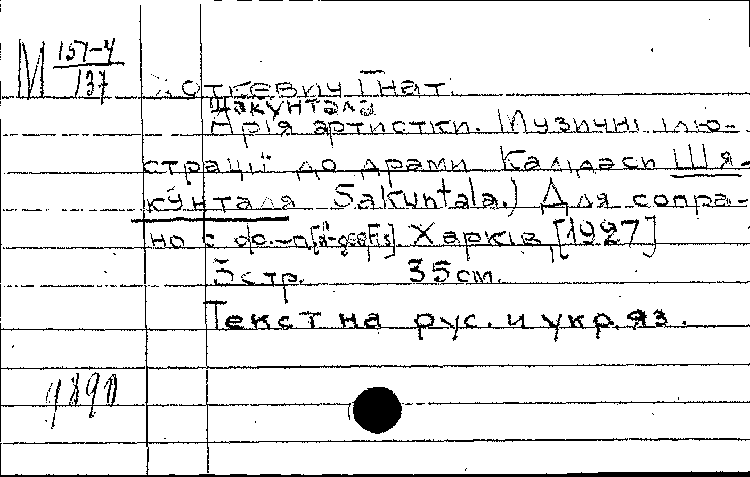 М 157-4
137
Хоткевич Гнат.
Шакунтала
Арія артистки. Музичні ілю-
страції до драми Калідаси Ша-
кунтала Sakuntala.) Для сопра-
но с ф.-п. Харків, [1927]
5 стр. 35 см.
Текст на рус. и укр. яз.
9890